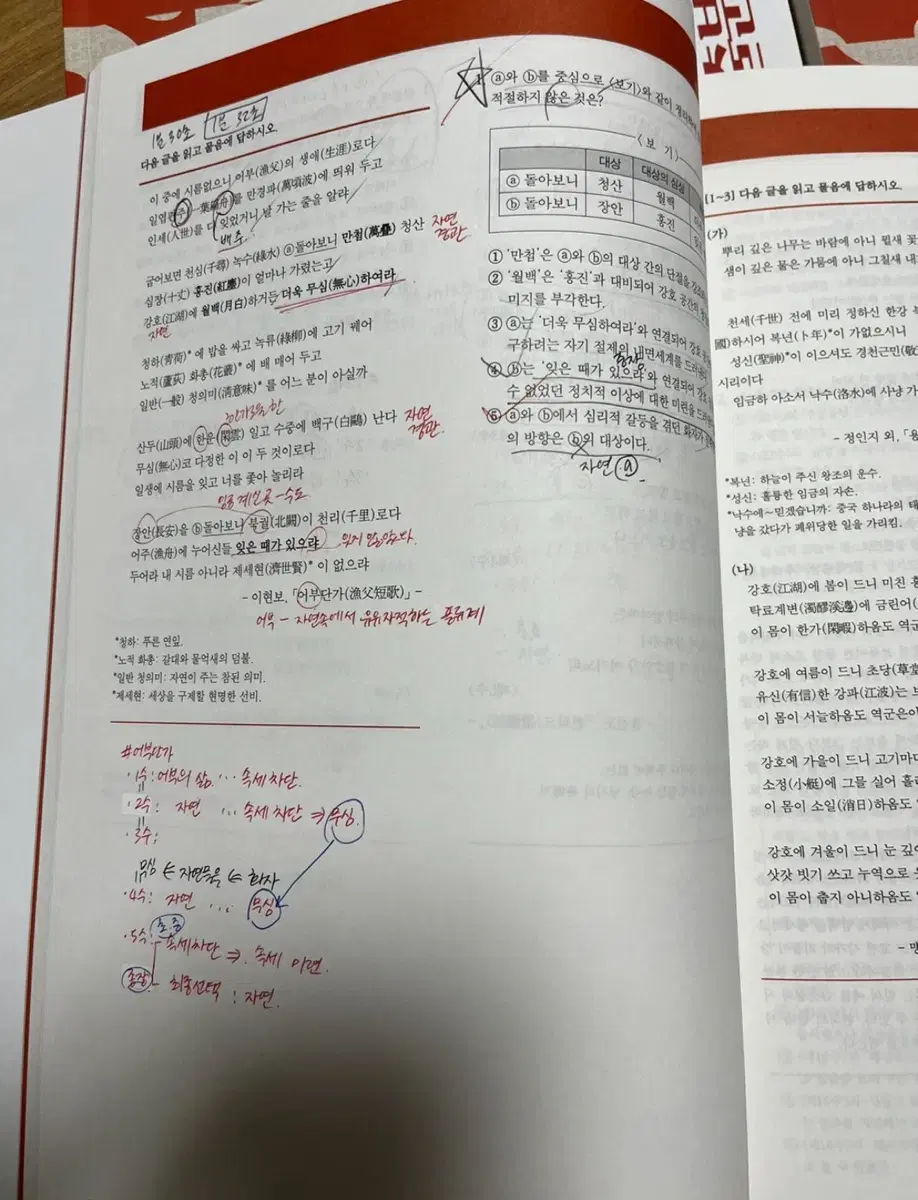 1분 30초 1분 52초
다음 글을 읽고 물음에 답하시오.
이 중에 시름없으니 어부(漁父)의 생애(生涯)로다
일엽편주(一葉扁舟)를 만경파(萬頃波)에 띄워 두고
인세(人世)를 다 잊었거니 날 가는 줄을 알랴
배후
굽어보면 천심(千尋) 녹수(綠水) ⓐ돌아보니 만첩(萬疊) 청산
자연
경관
십장(十丈) 홍진(紅塵)이 얼마나 가렸는고
강호(江湖)에 월백(月白)하거든 더욱 무심(無心)하여라
자연
청하(靑荷)*에 밥을 싸고 녹류(綠柳)에 고기 꿰어
노적(蘆荻) 화총(花叢)*에 배 매어 두고
일반(一般) 청의미(淸意味)*를 어느 분이 아실까
한가로운
산두(山頭)에 한운(閑雲) 일고 수중에 백구(白鷗) 난다
자연
경관.
무심(無心)코 다정한 이 이 두 것이로다
일생에 시름을 잊고 너를 좇아 놀리라
임금 계신 곳 - 수도
장안(長安)을 ⓑ돌아보니 북궐(北闕)이 천리(千里)로다
어주(漁舟)에 누어신들 잊은 때가 있으랴
잊지 않았다.
두어라 내 시름 아니라 제세현(濟世賢)*이 없으랴
- 이현보, 「어부단가(漁父短歌)」 -
어부 - 자연속에서 유유자적하는 풍류객
*청하: 푸른 연잎.
*노적 화총: 갈대와 물억새의 덤불.
*일반 청의미: 자연이 주는 참된 의미.
*제세현: 세상을 구제할 현명한 선비.
#어부단가
·1수: 어부의 삶 ··· 속세 차단.
·2수: 자연 ··· 속세 차단 ⇒ 무심.
·3수:
무심 ⇐ 자연물 ⇐ 화자
·4수: 자연 ··· 무심
·5수: 초,중
속세차단 ⇒ 속세 미련.
종장 - 최종선택 : 자연.
1 ⓐ와 ⓑ를 중심으로 <보기>와 같이
적절하지 않은 것은?
<보 기>
대상 대상의 심상
ⓐ 돌아보니 청산 월백
ⓑ 돌아보니 장안 홍진
① '만첩'은 ⓐ와 ⓑ의 대상 간의 단절을
② '월백'은 '홍진'과 대비되어 강호 공간의
미지를 부각한다.
③ ⓐ는 '더욱 무심하여라'와 연결되어 강호
구하려는 자기 절제의 내면세계를
④ ⓑ는 '잊은 때가 있으랴'와 연결되어 강호
수 없었던 정치적 이상에 대한 미련을
⑤ ⓐ와 ⓑ에서 심리적 갈등을 겪던 화자가
의 방향은 ⓑ의 대상이다.
자연 ⓐ.
[1~3] 다음 글을 읽고 물음에 답하시오.
(가)
뿌리 깊은 나무는 바람에 아니 뮐새 꽃
샘이 깊은 물은 가뭄에 아니 그칠새 내
천세(千世) 전에 미리 정하신 한강
國)하시어 복년(卜年)*이 가없으시니
성신(聖神)*이 이으셔도 경천근민(敬
시리이다
임금하 아소서 낙수(洛水)에 사냥 가
- 정인지 외, 「용
*복년: 하늘이 주신 왕조의 운수.
*성신: 훌륭한 임금의 자손.
*낙수에~믿겠습니까: 중국 하나라의 태
냥을 갔다가 폐위당한 일을 가리킴.
(나)
강호(江湖)에 봄이 드니 미친 흥
탁료계변(濁醪溪邊)에 금린어(
이 몸이 한가(閑暇)하옴도 역군
강호에 여름이 드니 초당(草堂
유신(有信)한 강파(江波)는
이 몸이 서늘하옴도 역군은이
강호에 가을이 드니 고기마다
소정(小艇)에 그물 실어
이 몸이 소일(消日)하옴도
강호에 겨울이 드니 눈 깊이
삿갓 빗기 쓰고 누역으로
이 몸이 춥지 아니하옴도
- 맹